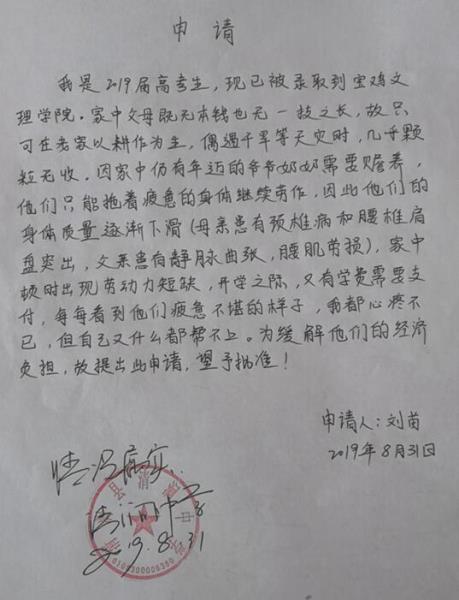 申 请
我是2019届高考生，现已被录取到宝鸡文
理学院。家中父母既无本钱也无一技之长，故只
可在老家以耕作为生，偶遇干旱等天灾时，几乎颗
粒无收。因家中仍有年迈的爷爷奶奶需要赡养，
他们只能拖着疲惫的身体继续劳作，因此他们的
身体质量逐渐下滑（母亲患有颈椎病和腰椎肩
盘突出，父亲患有静脉曲张，腰肌劳损），家中
顿时出现劳动力短缺，开学之际，又有学费需要支
付，每每看到他们疲惫不堪的样子，我都心疼不
已，但自己又什么都帮不上。为缓解他们的经济
负担，故提出此申请，望予批准！
申请人：刘苗
2019年8月31日
情况属实.
2019.8.31